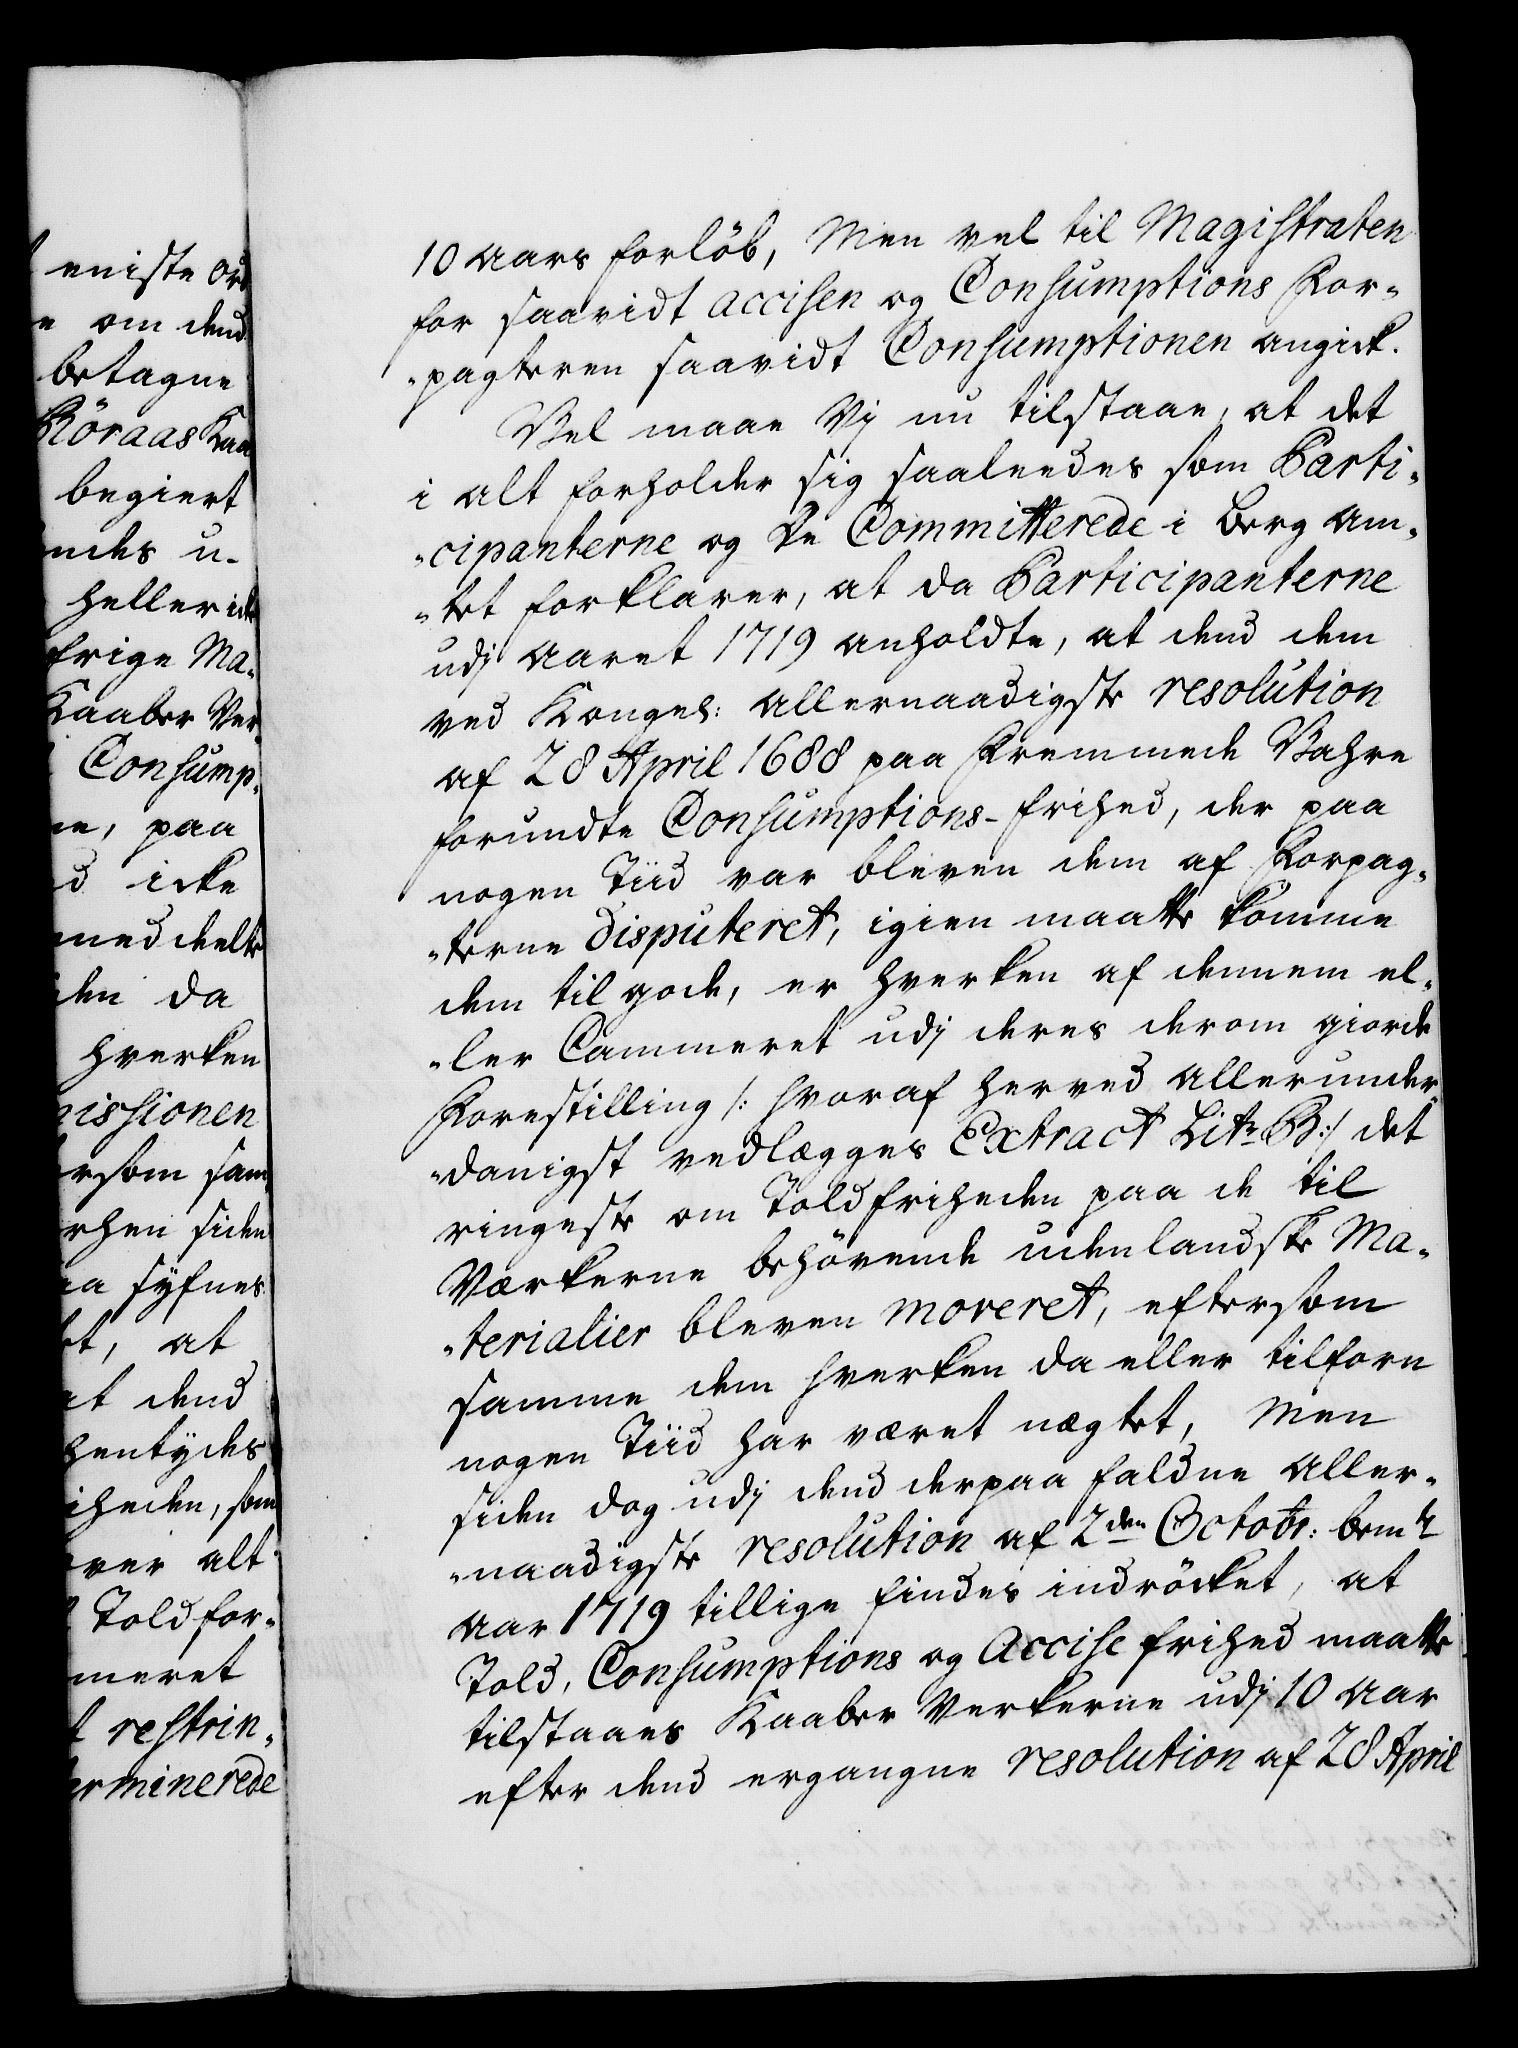 eniste Ord
om dend
betagne
Röraas Kaa
begiert
ndes u-
heller ick
frige Ma-
Kaaber Ver
Consump-
ne, paa
d icke
meddeelte
den da
hverken
missionen
ersom sam
rhen siden
aa syfnes
et, at
at dend
hentydes
iheden, som
ver alt
Told for-
meret
restrin-
erminerede
10 Aars forlöb, Men vel til Magistraten
for saavidt accisen og Consumptions For-
-pagteren saavidt Consumptionen angick.
Vel maae Vj nu tilstaae, at det
i alt forholder sig saaleedes som Parti-
-cipanterne og De Committerede i Berg Am-
-tet forklarer, at da Participanterne
udj Aaret 1719 anholdte, at dend dem
ved Kongel: Allernaadigste resolution
af 28 April 1688 paa Fremmede Vahre
forundte Consumptions-frihed, der paa
nogen Tiid var bleven dem af Forpag-
-terne disputeret, igien maatte komme
dem til gode, er hverken af dennem el-
-ler Cammeret udj deres derom giorde
Forestilling /: hvoraf herved Allerunder-
-danigst vedlægges Extract Litr B:/ det
ringeste om Toldfriheden paa de til
Værkerne behövende udenlandske Ma-
-terialier bleven moveret, eftersom
samme dem hverken da eller tilforn
nogen Tiid har været nægtet, Men
siden dog udj dend derpaa faldne Aller-
-naadigste resolution af 2den Octobr: bemte
Aar 1719 tillige findes indröcket, at
Told, Consumptions og Accise frihed maatte
tilstaaes Kaaber Verkerne udj 10 Aar
efter dend ergangne resolution af 28 April